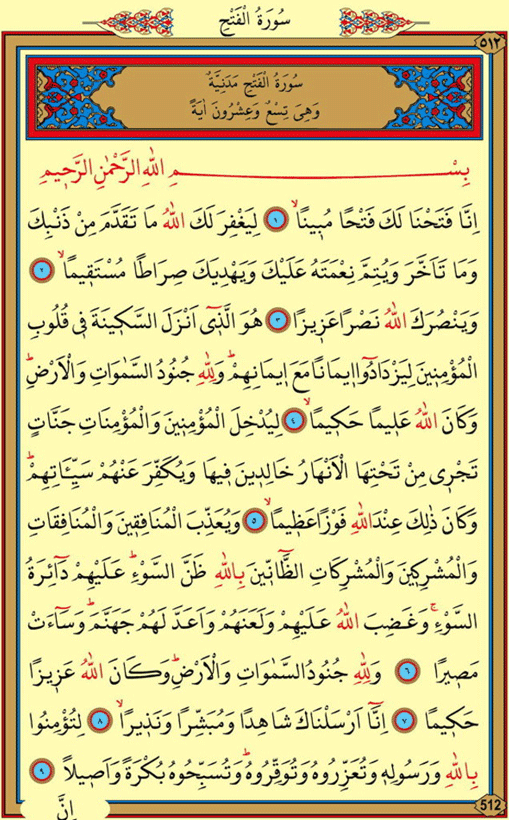 سُورَةُ الْفَتْحِ
٥١٢
سُورَةُ الْفَتْحِ مَدَنِيَّةٌ
وَهِيَ تِسْعٌ وَعِشْرُونَ اٰيَةً
بِسْــــــــــــمِ اللّٰهِ الرَّحْمٰنِ الرَّحٖيمِ
اِنَّا فَتَحْنَا لَكَ فَتْحًا مُبٖينًاۙ ﴿١﴾ لِيَغْفِرَ لَكَ اللّٰهُ مَا تَقَدَّمَ مِنْ ذَنْبِكَ
وَمَا تَاَخَّرَ وَيُتِمَّ نِعْمَتَهُ عَلَيْكَ وَيَهْدِيَكَ صِرَاطًا مُسْتَقٖيمًاۙ ﴿٢﴾
وَيَنْصُرَكَ اللّٰهُ نَصْرًا عَزٖيزًا ﴿٣﴾ هُوَ الَّذٖٓى اَنْزَلَ السَّكٖينَةَ فٖى قُلُوبِ
الْمُؤْمِنٖينَ لِيَزْدَادُٓوا اٖيمَانًا مَعَ اٖيمَانِهِمْؕ وَلِلّٰهِ جُنُودُ السَّمٰوَاتِ وَالْاَرْضِؕ
وَكَانَ اللّٰهُ عَلٖيمًا حَكٖيمًاۙ ﴿٤﴾ لِيُدْخِلَ الْمُؤْمِنٖينَ وَالْمُؤْمِنَاتِ جَنَّاتٍ
تَجْرٖى مِنْ تَحْتِهَا الْاَنْهَارُ خَالِدٖينَ فٖيهَا وَيُكَفِّرَ عَنْهُمْ سَيِّـَٔاتِهِمْؕ
وَكَانَ ذٰلِكَ عِنْدَ اللّٰهِ فَوْزًا عَظٖيمًاۙ ﴿٥﴾ وَيُعَذِّبَ الْمُنَافِقٖينَ وَالْمُنَافِقَاتِ
وَالْمُشْرِكٖينَ وَالْمُشْرِكَاتِ الظَّٓانّٖينَ بِاللّٰهِ ظَنَّ السَّوْءِؕ عَلَيْهِمْ دَٓائِرَةُ
السَّوْءِۚ وَغَضِبَ اللّٰهُ عَلَيْهِمْ وَلَعَنَهُمْ وَاَعَدَّ لَهُمْ جَهَنَّمَؕ وَسَٓاءَتْ
مَصٖيرًا ﴿٦﴾ وَلِلّٰهِ جُنُودُ السَّمٰوَاتِ وَالْاَرْضِؕ وَكَانَ اللّٰهُ عَزٖيزًا
حَكٖيمًا ﴿٧﴾ اِنَّٓا اَرْسَلْنَاكَ شَاهِدًا وَمُبَشِّرًا وَنَذٖيرًاۙ ﴿٨﴾ لِتُؤْمِنُوا
بِاللّٰهِ وَرَسُولِهٖ وَتُعَزِّرُوهُ وَتُوَقِّرُوهُؕ وَتُسَبِّحُوهُ بُكْرَةً وَاَصٖيلًا ﴿٩﴾
512
اِنَّ